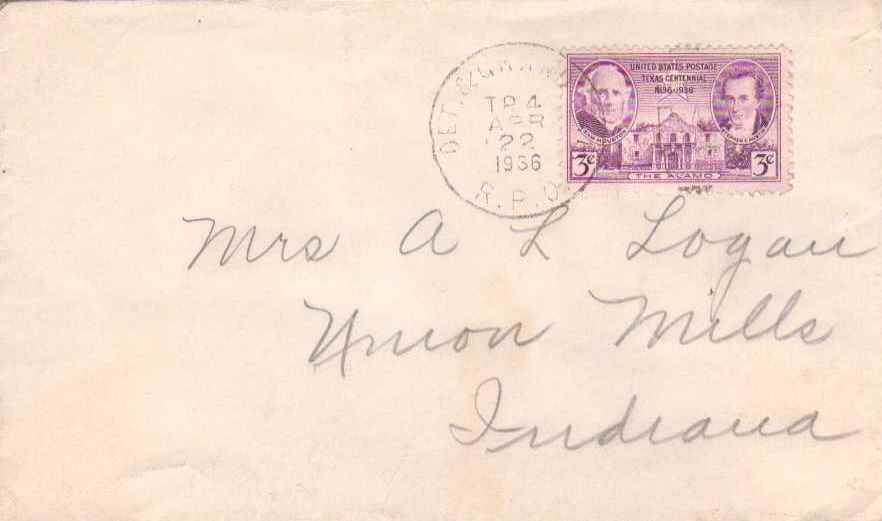 UNITED STATES POSTAGE
TEXAS CENTENNIAL
1836·1936
SAM HOUSTON
3¢ 3¢
THE ALAMO
TR 4
APR
22
1936
R.P.O.
Mrs A L Logan
Union Mills
Indiana